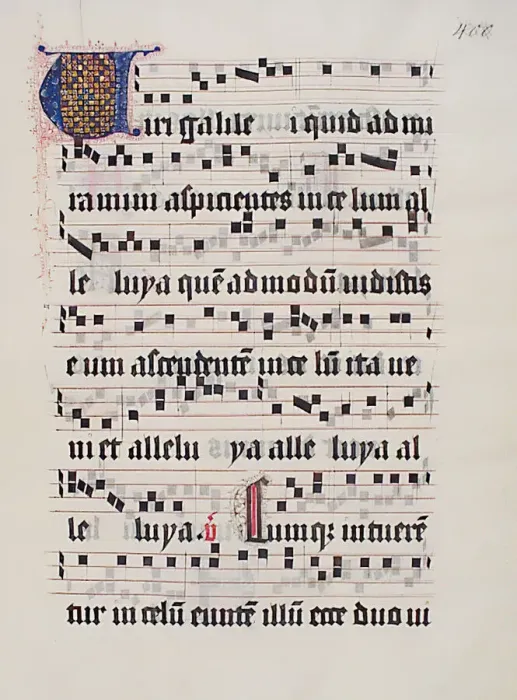 400
Viri galile i quid ad mi
ramini aspicientes in ce lum al
le luya quē ad modū uidistis
e um ascendentē in ce lū ita ue
ni et allelu ya alle luya al
le luya. v̄ Cumq; intuerē
tur in celū euntē illū ecce duo ui